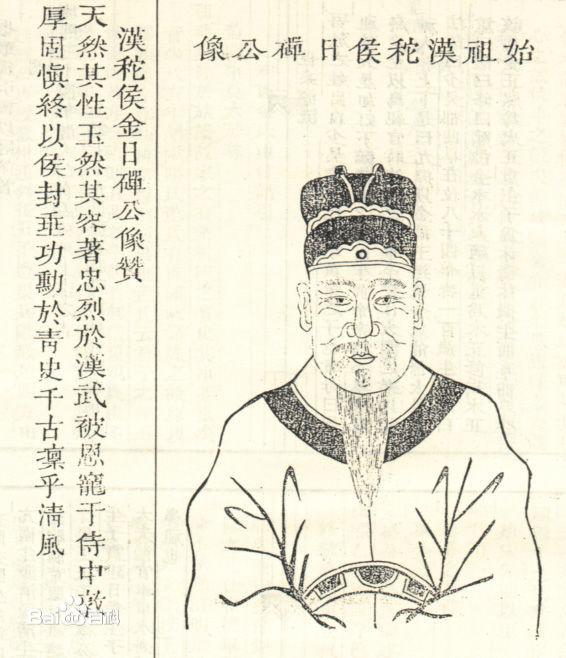 始祖漢秺侯日磾公像
漢秺侯金日磾公像贊
天然其性玉然其容著忠烈於漢武被恩寵于侍中
厚固慎終以侯封垂功勳於青史千古稟乎清風
Bai百科